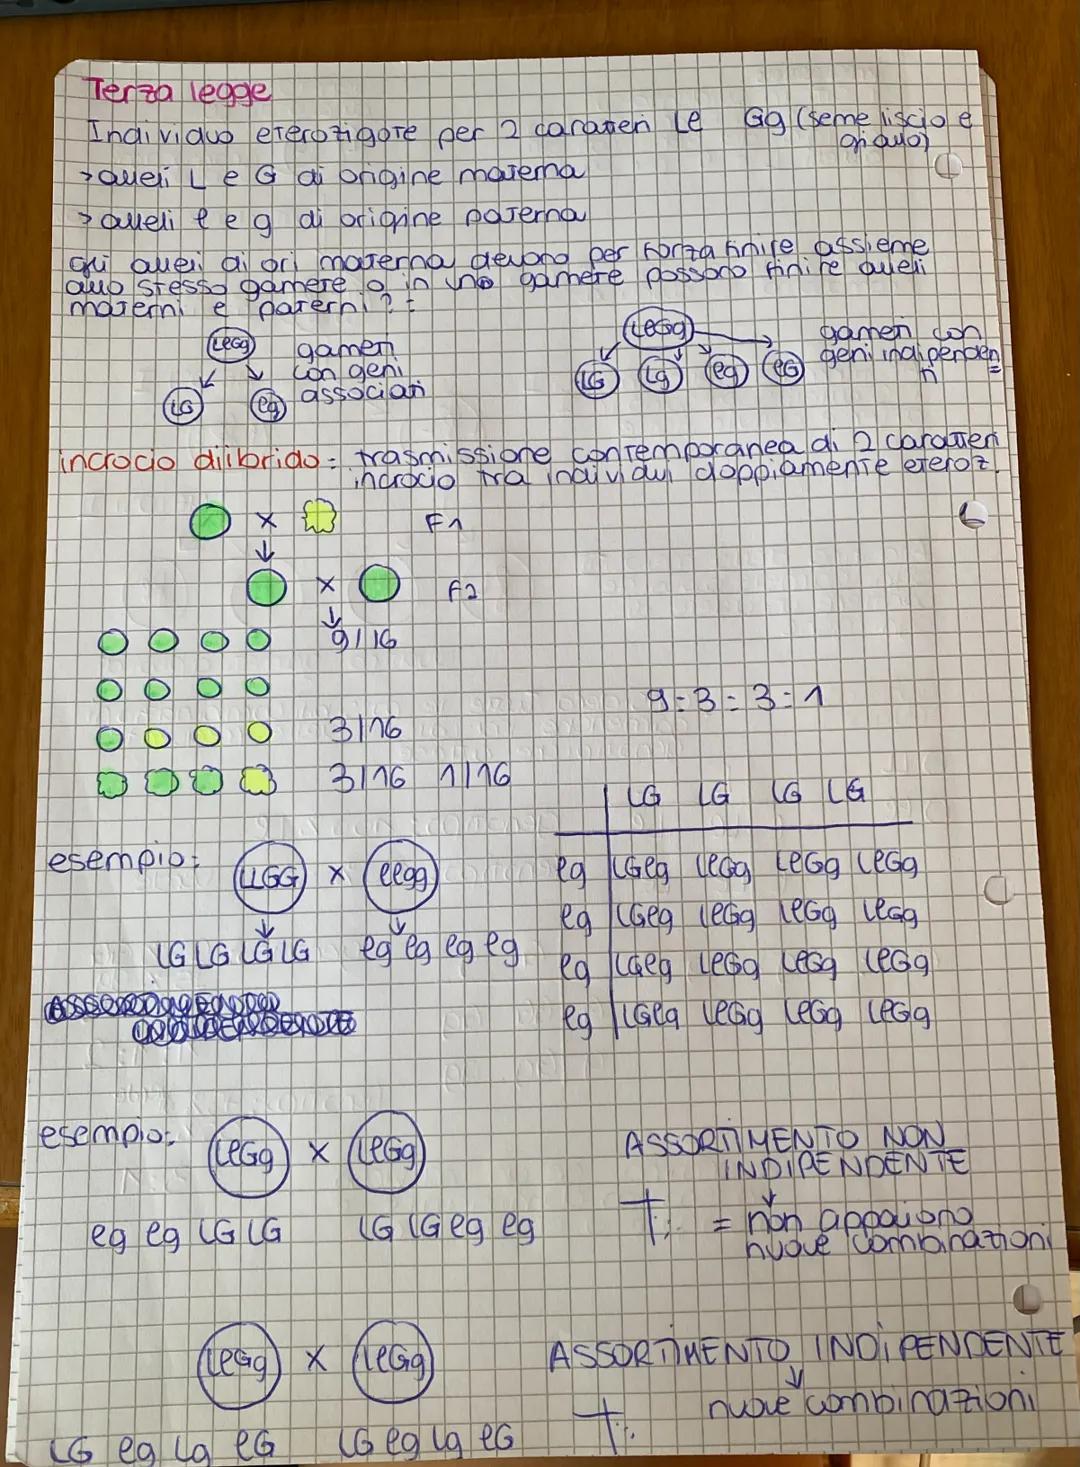 Terza legge
Individuo eterozigote per 2 caratteri Lℓ Gg (seme liscio e giallo)
→alleli L e G di origine materna
→alleli ℓ e g di origine paterna
gli allei di ori materna devono per forza finire assieme
allo stesso gamete o in uno gamete possono finire alleli
materni e paterni? :
LℓGg
gameti con geni associati
LG ℓg
LℓGg
gameti con geni indipendenti
LG Lg ℓg ℓG
incrocio diibrido: trasmissione contemporanea di 2 caratteri
incrocio tra individui doppiamente eteroz.
x F1
x F2
9/16
9:3:3:1
3/16
3/16 1/16
LG LG LG LG
esempio: LLGG x ℓℓgg
ℓg LGℓg LℓGg LℓGg LℓGg
ℓg LGℓg LℓGg LℓGg LℓGg
LG LG LG LG ℓg ℓg ℓg ℓg
ℓg LGℓg LℓGg LℓGg LℓGg
ℓg LGℓg LℓGg LℓGg LℓGg
esempio: LℓGg x LℓGg
ASSORTIMENTO NON
INDIPENDENTE
ℓg ℓg LG LG LG LG ℓg ℓg
= non appaiono
nuove combinazioni
LℓGg x LℓGg
ASSORTIMENTO INDIPENDENTE
nuove combinazioni
LG ℓg Lg ℓG LG ℓg Lg ℓG